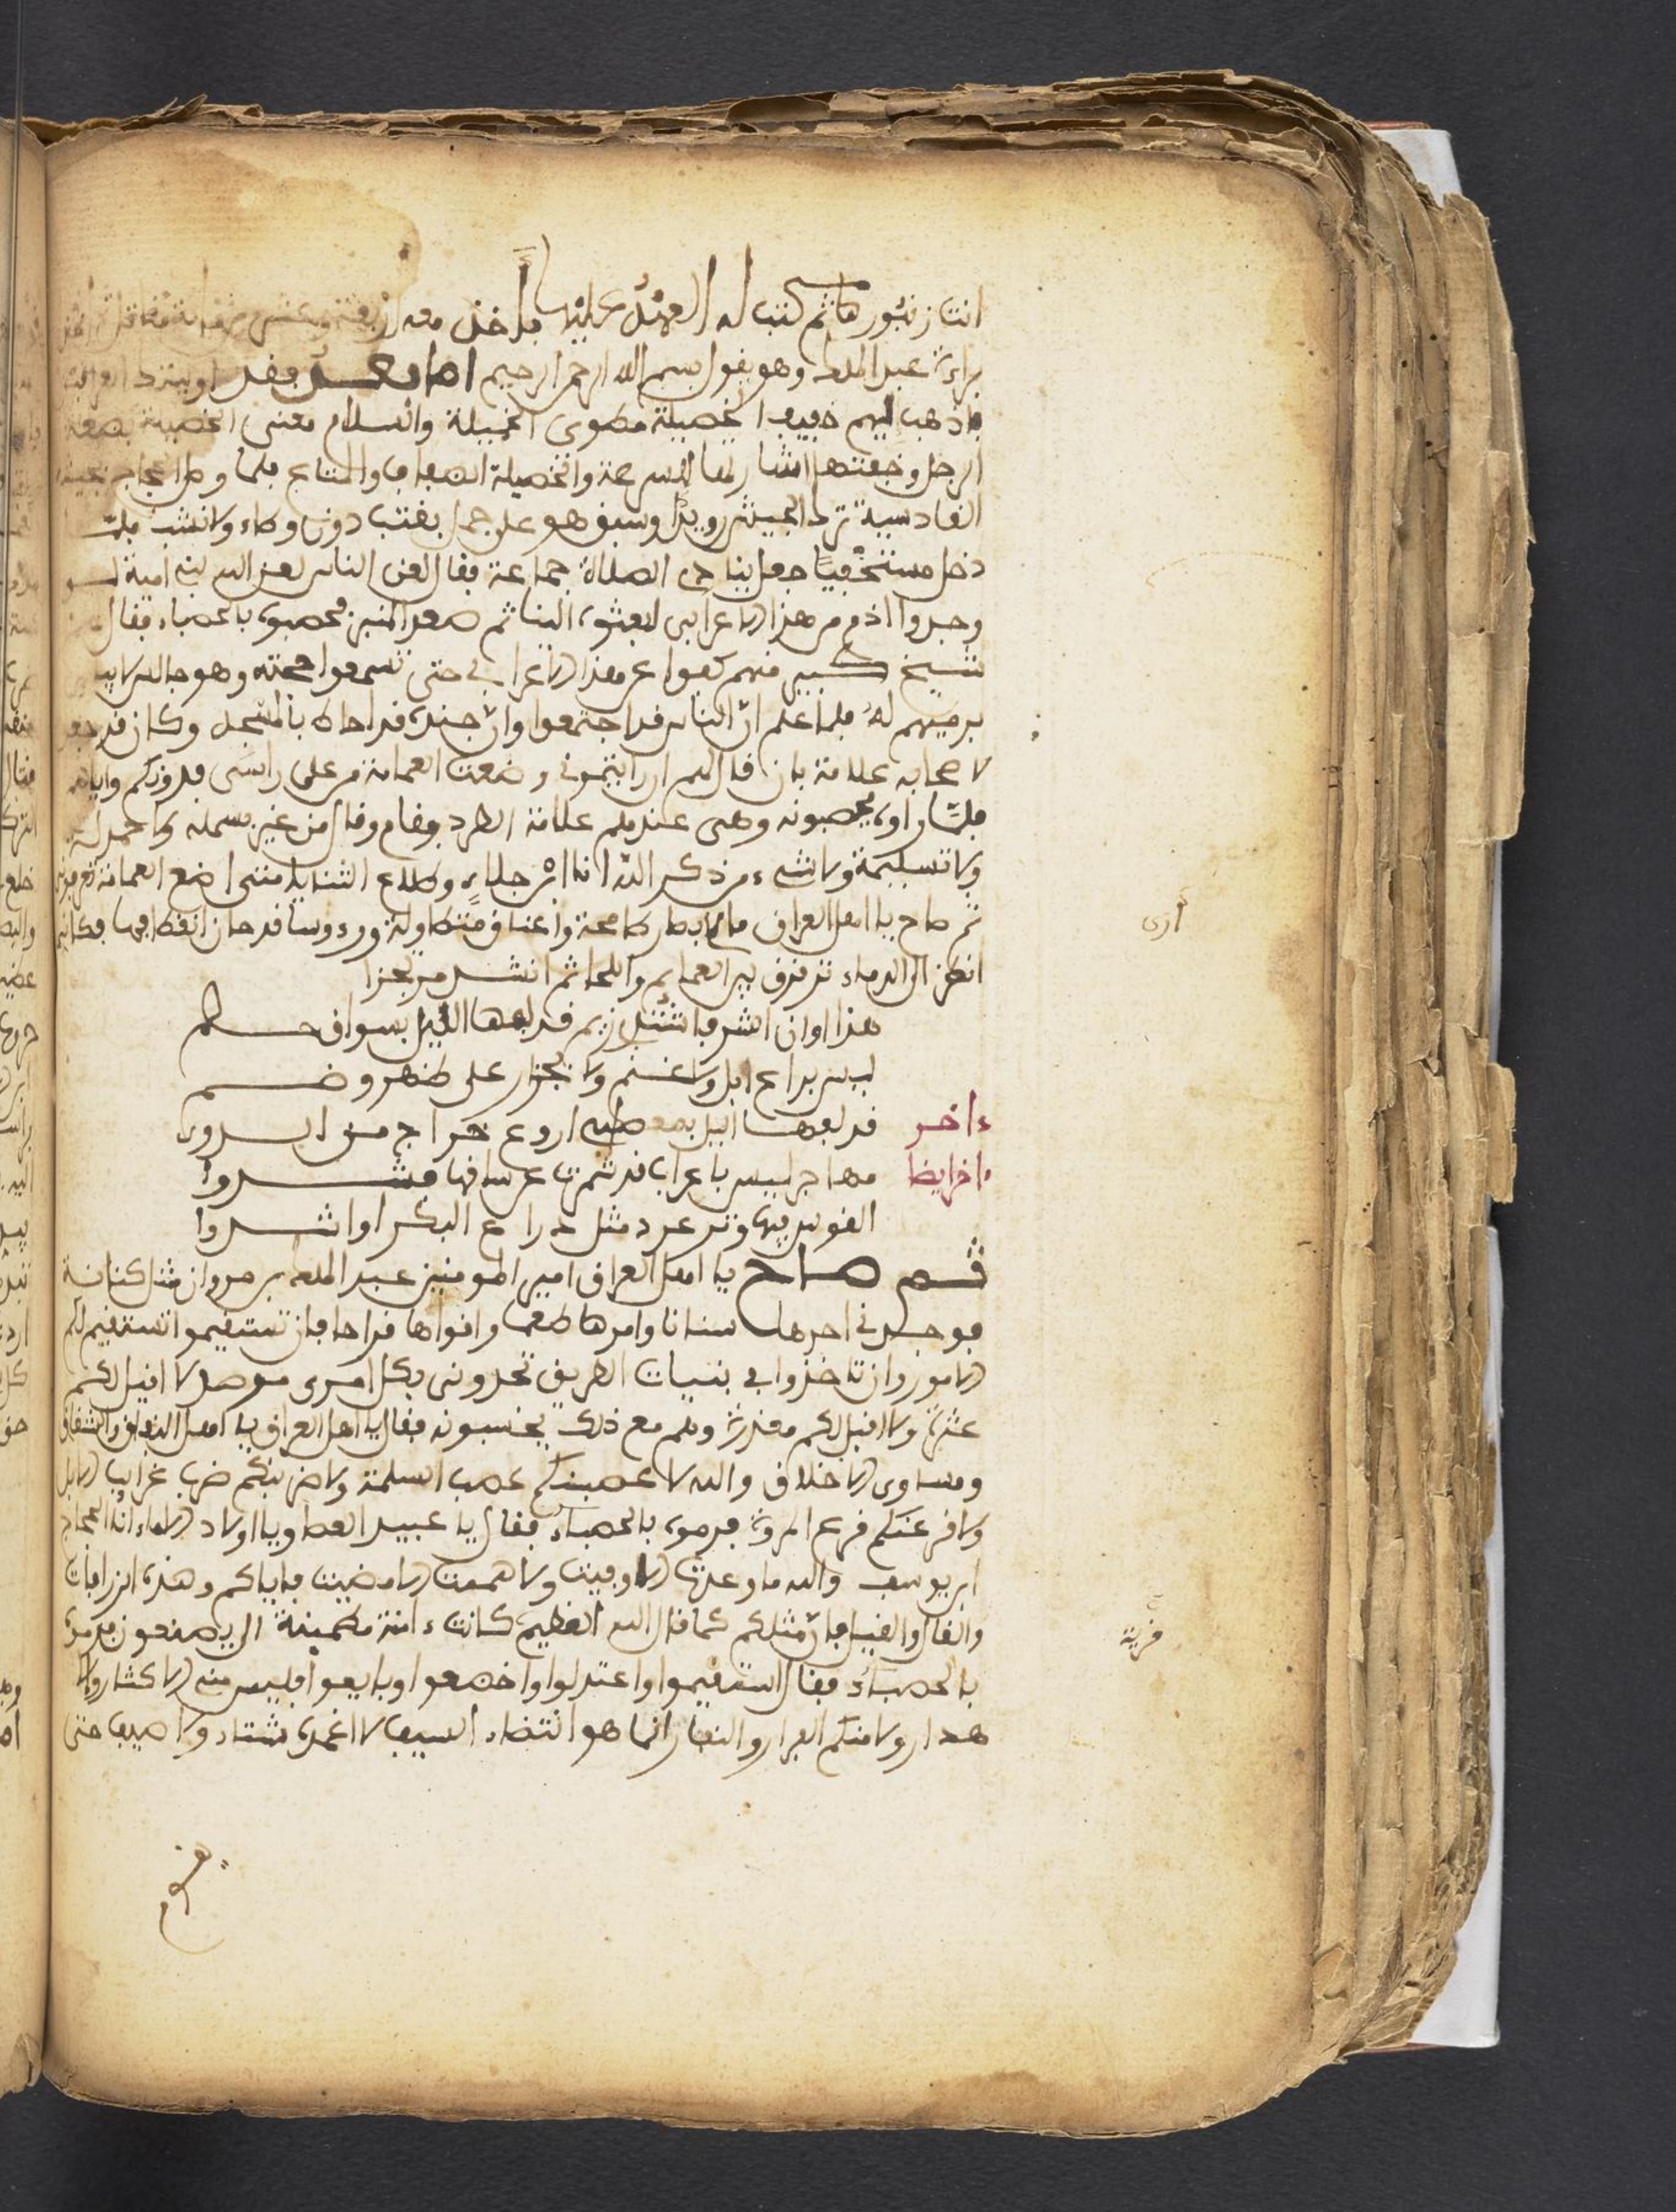 انت زنبورها ثم كتب له العهد عليها فاخذ معه
براءة عبد الملك وهو يقول بسم الله الرحمن الرحيم اما بعد فقد
فاذهب اليهم خفيف الخصيلة مطوى الخميلة والسلام معنى الخصيلة بضعة
الرجل وخفتها اشارة السرعة والخميلة والمتاع فلما وصل الحجاج بجيشه
القادسية ترك الجيش رويدا وسبق هو على جمل بقتب دون وطاء ولا نشب فلما
دخل مستخفيا جعل ينادى الصلاة جماعة فقال الناس لعن الله بنى امية لو
وجدوا اذم من هذا الاعرابى لبعثوه الينا ثم صعد المنبر فحصبوه بالحصباء فقال
شيخ كبير منهم كفوا عن هذا الاعرابي حتى تسمعوا حجته وهو جالس لا
برميهم له فلما علم ان الناس قد اجتمعوا وان جنده قد احاط بالمسجد وكان قد جعل
لاصحابه علامة بان قال لهم ان رايتمونى وضعت العمامة من على راسى فدونكم واياهم
فلما راوه يحصبونه وهى عندهم علامة الطرد وقام وقال من غير بسملة ولا حمدلة
ولا تسليمة ولا شيء من ذكر الله انا ابن جلا وطلاع الثنايا متى اضع العمامة تعرفونى
ثم صاح يا اهل العراق مالى ابصار طامحة واعناق متطاولة ورءوسا قد حان اقطافها فكانى
انظر الى الدماء تترقرق بين العمايم واللحا ثم انشد مرتجزا
هذا اوان الشر فاشتدى زيم قد لفها الليل بسواق حطم
ليس براعى ابل ولا غنم ولا بجزار على ظهر وضم
ءاخر قد لفها الليل بعصلبى اروع خراج من الدوى
ءاخر ايضا مهاجر ليس باعرابى قد شمرت عن ساقها فشدوا
القوس فيها وتر عرد مثل ذراع البكر او اشدوا
ثم صاح يا اهل العراق امير المومنين عبد الملك بن مروان نثل كنانته
فوجدنى احدها سنانا وامرها طعما واقواها قداحا فان تستقيموا تستقيم لكم
الامور وان تاخذوا بي بنيات الطريق تجدونى بكل امرى مرصد لا اقيل لكم
عثرة ولا اقبل لكم معذرة وهم مع ذلك يحصبونه فقال يا اهل العراق يا اهل النفاق والشقاق
ومساوى الاخلاق والله لاعصبنكم عصب السلمة ولاضربنكم ضرب غرايب الابل
ولاقرعنكم قرع المروة فرموه بالحصباء فقال يا عبيد العصا ويا اولاد الاماء انا الحجاج
ابن يوسف والله ما وعدت الا وفيت ولا هممت الا مضيت فاياكم وهذه الزرافات
والقال والقيل فان مثلكم كما قال الله العظيم كانت ءامنة مطمينة الى يصنعون فرموه
بالحصباء فقال استقيموا واعتدلوا واخضعوا وبايعوا فليس منى الاكثار ولا
هدار ولا منكم الفرار والنفار انما هو انتضاء السيف لا اغمده شتاء ولا صيف حتى
ارى
قرية